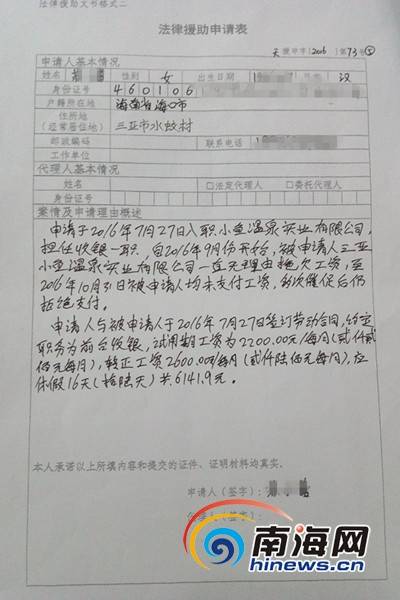 法律援助文书格式二
法律援助申请表
天援申字[2016]第73号
申请人基本情况
姓名 性别 女 出生日期 民族 汉
身份证号 460106
户籍所在地 海南省海口市
住所地
(经常居住地) 三亚市水蛟村
邮政编码 联系电话
工作单位
代理人基本情况
姓名 □法定代理人 □委托代理人
身份证号
案情及申请理由概述
申请于2016年7月27日入职小鱼温泉实业有限公司,
担任收银一职。自2016年9月份开始,被申请人三亚
小鱼温泉实业有限公司一直无理由拖欠工资,至
2016年10月31日被申请人均未支付工资,多次催促后仍
拒绝支付。
申请人与被申请人于2016年7月27日签订劳动合同,约定
职务为前台收银,试用期工资为2200.00元/每月(贰仟贰
佰元每月),转正工资2600.00元/每月(贰仟陆佰元每月),应
休假16天(拾陆天)共6141.9元。
本人承诺以上所填内容和提交的证件、证明材料均真实。
申请人(签字):
代理人(签字):
南海网
hinews.cn